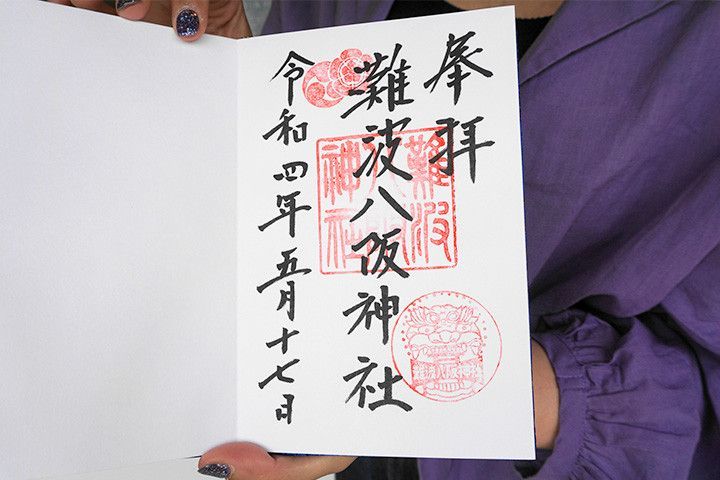 奉拝
難波八阪神社
令和四年五月十七日
難波八阪神社
難波八阪神社